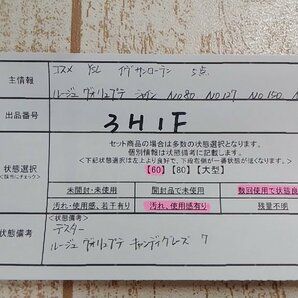 主情報
コスメ YSL イヴサンローラン 5点
ルージュ ヴォリュプテ シャイン No80 No127 No150
出品番号
3H1F
状態選択
(該当にチェック)
セット商品の場合は多数の状態となります。
個別情報は状態備考に記載します。
<下記状態選択は左上より良好で、下段右側が一番状態が低くなります>
【60】【80】【大型】
未開封・未使用
開封品で未使用
数回使用で状態良
汚れ・使用感、若干有り
汚れ、使用感有り
残量不明
状態備考
<状態備考>
テスター
ルージュ ヴォリュプテ キャンディグレーズ 7